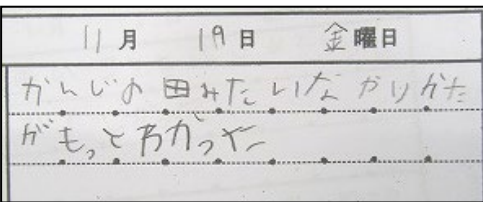 11月 19日 金曜日
かんじの田みたいなやりかた
がもっとわかった